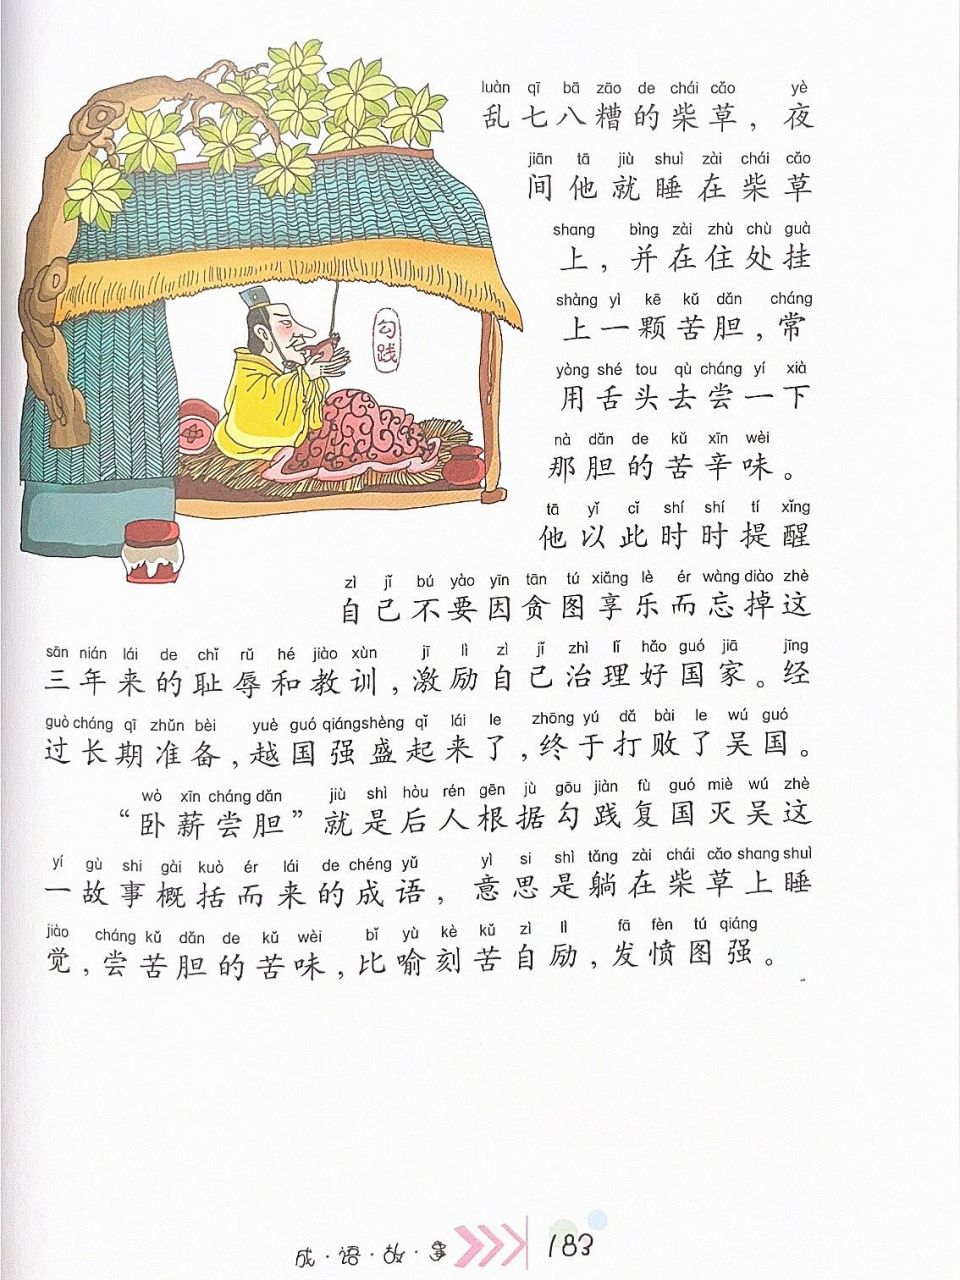 luàn qī bā zāo de chái cǎo yè
乱七八糟的柴草，夜
jiān tā jiù shuì zài chái cǎo
间他就睡在柴草
shang bìng zài zhù chù guà
上，并在住处挂
shàng yì kē kǔ dǎn cháng
上一颗苦胆，常
yòng shé tou qù cháng yí xià
用舌头去尝一下
nà dǎn de kǔ xīn wèi
那胆的苦辛味。
勾践
tā yǐ cǐ shí shí tí xǐng
他以此时时提醒
zì jǐ bú yào yīn tān tú xiǎng lè ér wàng diào zhè
自己不要因贪图享乐而忘掉这
sān nián lái de chǐ rǔ hé jiào xùn jī lì zì jǐ zhì lǐ hǎo guó jiā jīng
三年来的耻辱和教训，激励自己治理好国家。经
guò cháng qī zhǔn bèi yuè guó qiángshèng qǐ lái le zhōng yú dǎ bài le wú guó
过长期准备，越国强盛起来了，终于打败了吴国。
wò xīn cháng dǎn jiù shì hòu rén gēn jù gōu jiàn fù guó miè wú zhè
“卧薪尝胆”就是后人根据勾践复国灭吴这
yí gù shi gài kuò ér lái de chéng yǔ yì si shì tǎng zài chái cǎo shang shuì
一故事概括而来的成语，意思是躺在柴草上睡
jiào cháng kǔ dǎn de kǔ wèi bǐ yù kè kǔ zì lì fā fèn tú qiáng
觉，尝苦胆的苦味，比喻刻苦自励，发愤图强。
成·语·故·事 183